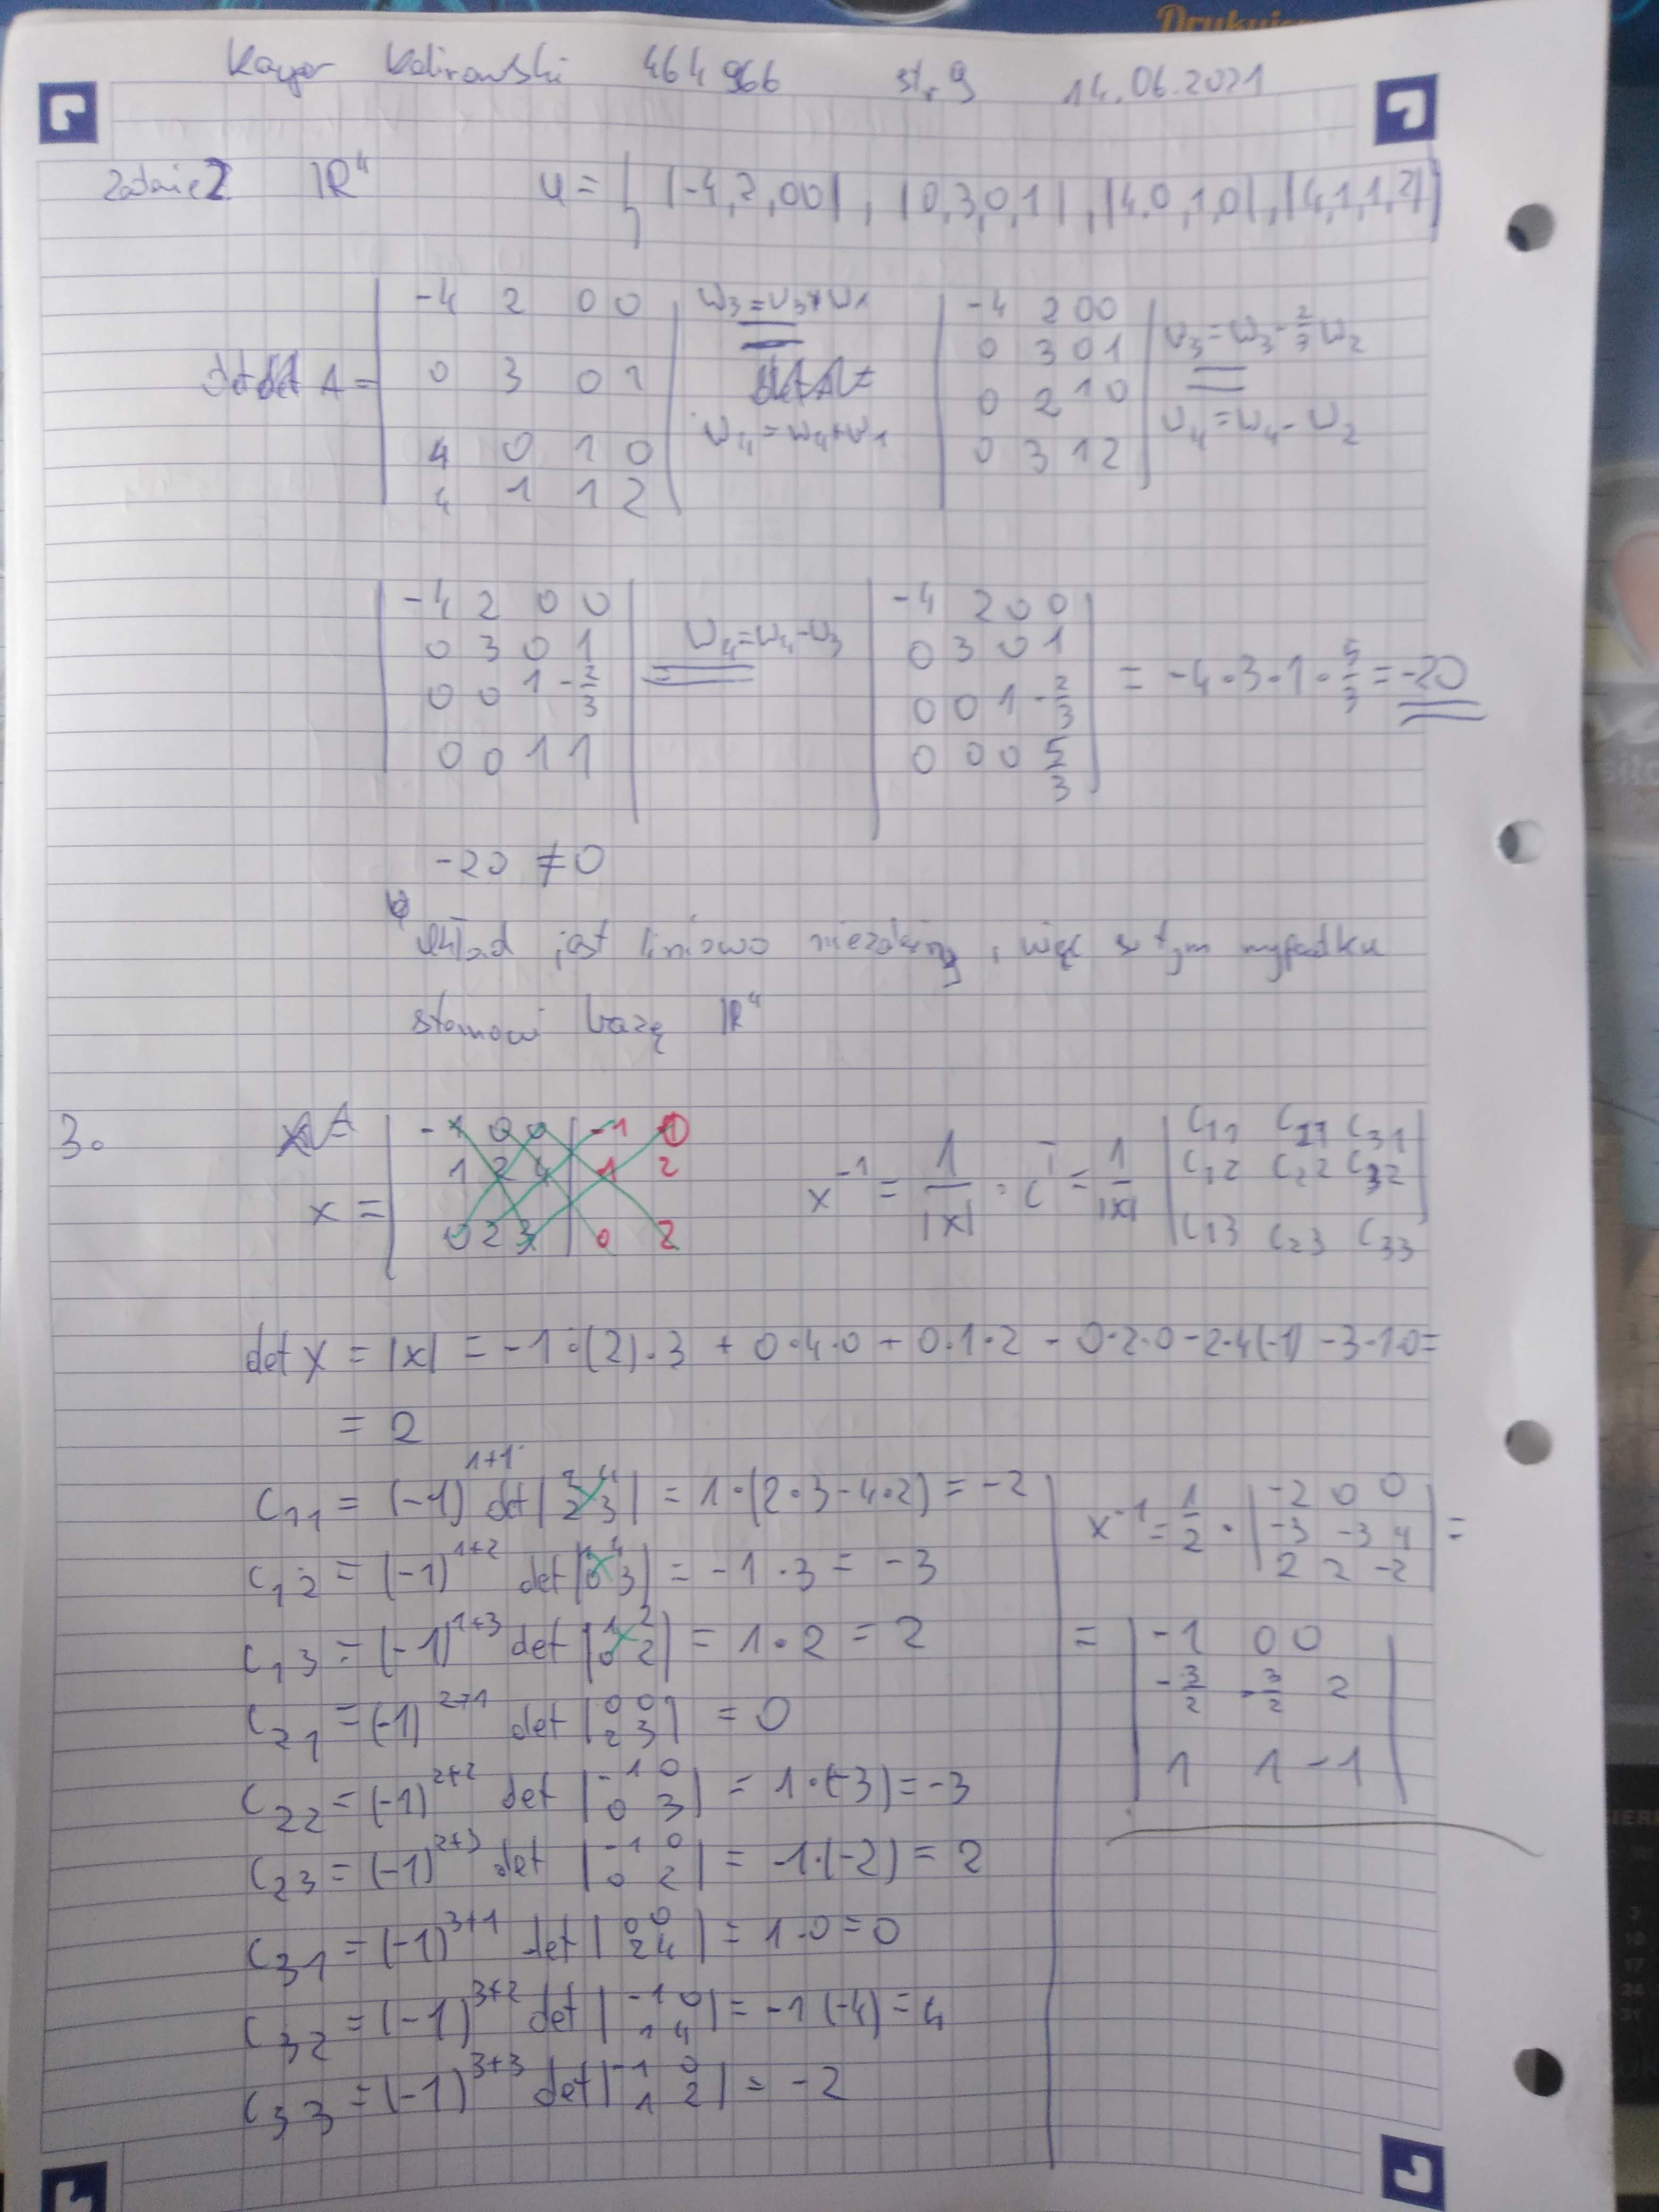 Drukujem
464966 str 9 14.06.2021
Zadanie 2 IR⁴ U = { (-4,2,00), (0,3,0,1), (4,0,1,0), (4,1,1,2) }
det A = | -4 2 0 0 | w3=w3+w1 | -4 2 0 0 | w3=w3-2/3w2
| 0 3 0 1 | = | 0 3 0 1 | =
| 4 0 1 0 | w4=w4+w1 | 0 2 1 0 | w4=w4-w2
| 4 1 1 2 | | 0 3 1 2 |
| -4 2 0 0 | | -4 2 0 0 |
| 0 3 0 1 | w4=w4-w3 | 0 3 0 1 |
| 0 0 1 -2/3 | = | 0 0 1 -2/3 | = -4·3·1·5/3 = -20
| 0 0 1 1 | | 0 0 0 5/3 |
-20 ≠ 0
układ jest liniowo niezależny, więc w tym wypadku
stanowi bazę IR⁴
3.
| -1 0 0 | -1 0
x = | 1 2 4 | 1 2
| 0 2 3 | 0 2
x⁻¹ = 1/|x| · Cᵀ = 1/|x| | C11 C21 C31 |
| C12 C22 C32 |
| C13 C23 C33 |
det x = |x| = -1·(2)·3 + 0·4·0 + 0·1·2 - 0·2·0 - 2·4(-1) - 3·1·0 =
= 2
C11 = (-1)^1+1 det | 2 4 | 2 3 | = 1·(2·3-4·2) = -2
C12 = (-1)^1+2 det | 1 4 | 0 3 | = -1·3 = -3
C13 = (-1)^1+3 det | 1 2 | 0 2 | = 1·2 = 2
C21 = (-1)^2+1 det | 0 0 | 2 3 | = 0
C22 = (-1)^2+2 det | -1 0 | 0 3 | = 1·(-3) = -3
C23 = (-1)^2+3 det | -1 0 | 0 2 | = -1·(-2) = 2
C31 = (-1)^3+1 det | 0 0 | 2 4 | = 1·0 = 0
C32 = (-1)^3+2 det | -1 0 | 1 4 | = -1(-4) = 4
C33 = (-1)^3+3 det | -1 0 | 1 2 | = -2
x⁻¹ = 1/2 · | -2 0 0 |
| -3 -3 4 | =
| 2 2 -2 |
= | -1 0 0 |
| -3/2 -3/2 2 |
| 1 1 -1 |